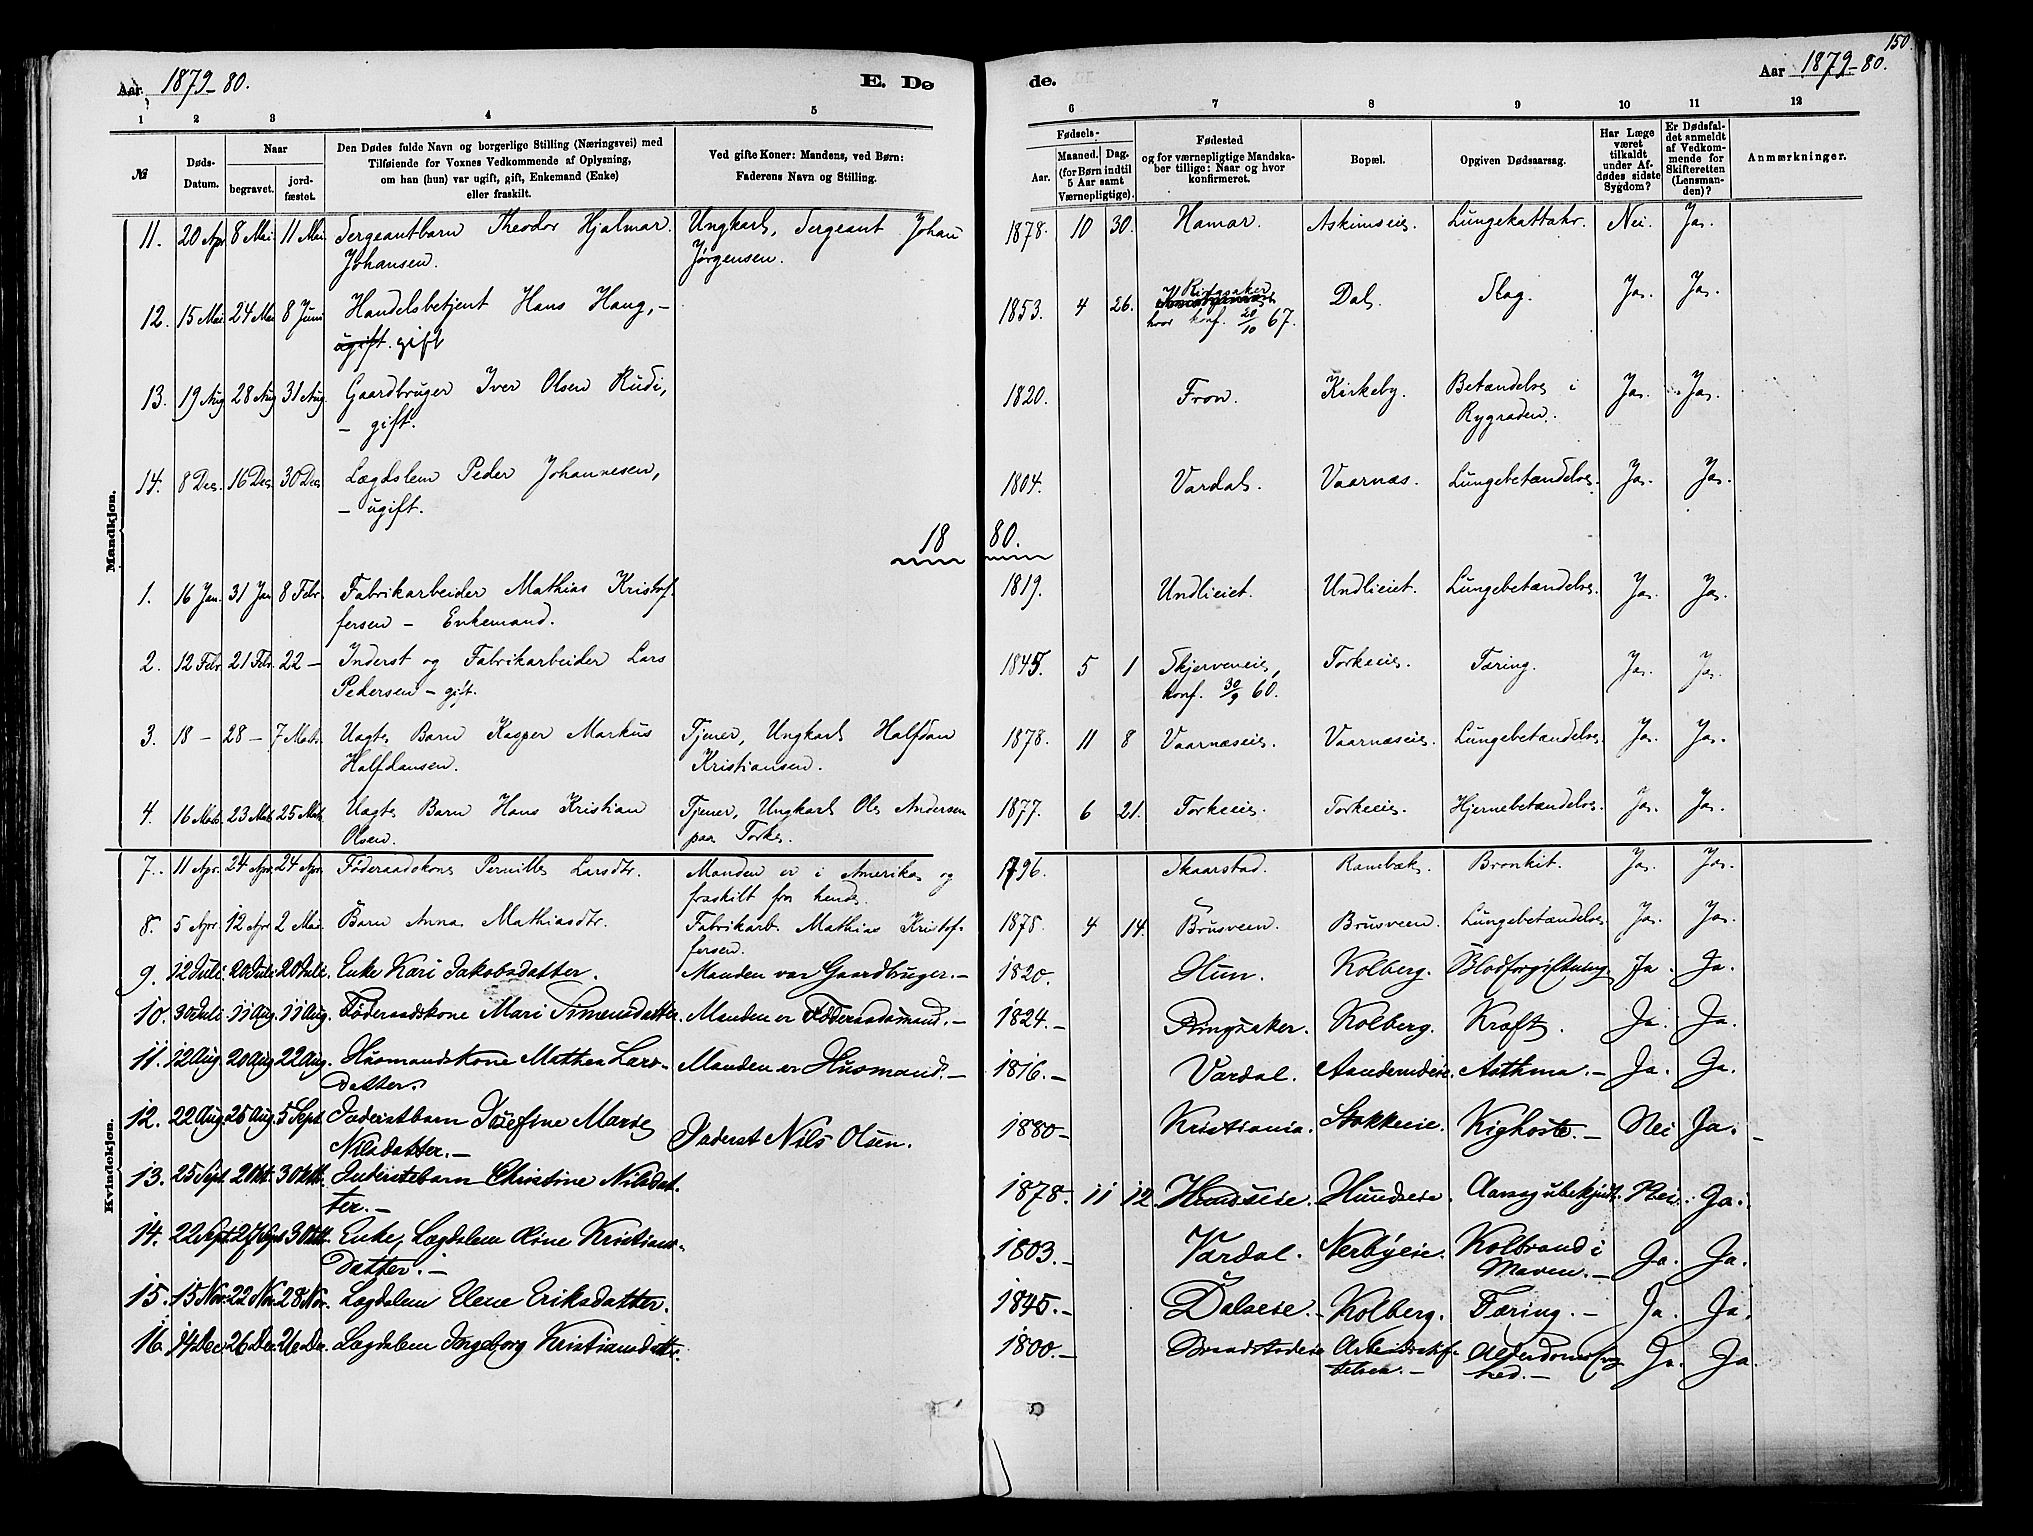 150.
Aar 1879-80.
E. Dø
de.
Aar 1879-80.
1 2 3 4 5 6 7 8 9 10 11 12
№
Døds-
Datum.
Naar
begravet.
jord-
fæstet.
Den Dødes fulde Navn og borgerlige Stilling (Næringsvei) med
Tilføiende for Voxnes Vedkommende af Oplysning,
om han (hun) var ugift, gift, Enkemand (Enke)
eller fraskilt.
Ved gifte Koner: Mandens, ved Børn:
Faderens Navn og Stilling.
Fødsels-
Aar.
Maaned. Dag.
(for Børn indtil
5 Aar samt
Værnepligtige).
Fødested
og for værnepligtige Mandska-
ber tillige: Naar og hvor
konfirmeret.
Bopæl.
Opgiven Dødsaarsag.
Har Læge
været
tilkaldt
under Af-
dødes sidste
Sygdom?
Er Dødsfal-
det anmeldt
af Vedkom-
mende for
Skifteretten
(Lensman-
den)?
Anmærkninger.
Mandkjøn.
11. 20 Apr 8 Mai 11 Mai Sergeantbarn Theodor Hjalmar Ungkarl, Sergeant Johan 1878. 10 30. Hamar. Askimseie. Lungekattahr. Nei. Ja.
Johansen. Jørgensen.
12. 15 Mai 24 Mai 8 Juni Handelsbetjent Hans Haug, – 1853. 4 26. Ringsaker, Dal. Slag. Ja. Ja.
ugift. gift hvor konf. 20/10 67.
13. 19 Aug 28 Aug 31 Aug. Gaardbruger Iver Olsen Rudi, 1820. Fron. Kirkeby. Betændelse i Ja. Ja.
– gift. Rygraden.
14. 8 Dec. 16 Dec. 30 Dec Lægdslem Peder Johannesen, 1804. Vardal. Vaarnæs. Lungebetændelse. Ja. Ja.
– ugift.
18 80.
1. 16 Jan. 31 Jan 8 Febr. Fabrikarbeider Mathias Kristof- 1819. Undlieiet. Undlieiet. Lungebetændelse. Ja. Ja.
fersen – Enkemand.
2. 12 Febr. 21 Febr. 22 – Inderst og Fabrikarbeider Lars 1845. 5 1 Skjerveneie, Torkeeie. Tæring. Ja. Ja.
Pedersen – gift. konf. 30/9 60.
3. 18 – 28 – 7 Marts. Uægte Barn Kasper Markus Tjener, Ungkarl Halfdan 1878. 11 8 Vaarnæseie. Vaarnæseie. Lungebetændelse. Ja. Ja.
Halfdansen. Kristiansen.
4. 16 Marts. 23 Marts 25 Marts. Uægte Barn Hans Kristian Tjener, Ungkarl Ole Andersen 1877. 6 21. Torkeeie. Torkeeie. Hjernebetændelse. Ja. Ja.
Olsen. paa Torke.
Kvindekjøn.
7. 11 Apr. 24 Apr. 24 Apr. Føderaadskone Pernille Larsdtr. Manden er i Amerika og 1796. Skaarstad. Rambæk. Bronkit. Ja. Ja.
fraskilt fra hende.
8. 5 Apr. 12 Apr 2 Mai. Barn Anna Mathiasdtr. Fabrikarb. Mathias Kristof- 1878. 4 14. Brusveen. Brusveen. Lungebetændelse Ja. Ja.
fersen.
9. 12 Juli. 20 Juli 20 Juli. Enke Kari Jakobsdatter. Manden var Gaardbruger. – 1820. Hun. Kolberg. Blodforgiftning Ja. Ja.
10. 30 Juli 11 Aug. 11 Aug. Føderaadskone Mari Simensdatter. Manden er Føderaadsmand. – 1824. – Ringsaker. Kolberg. Kræft. Ja. Ja.
11. 12 Aug. 20 Aug 22 Aug. Husmandskone Mathea Lars- Manden er Husmand. – 1816. – Vardal. Asthma. – Ja. Ja.
datter.
12. 22 Aug 25 Aug. 5 Sept. Inderstbarn Josefine Marie Inderst Nils Olsen. 1880 – Kristiania. Stokkeeie. Kighoste. – Nei Ja. –
Nilsdatter. –
13. 25 Sept. 2 Okt. 3 Okt. Inderstebarn Christine Nilsdat- 1878. 11 12. Hunseie. Hundseie. Aarsag ubekjendt. Nei. Ja.
ter. –
14. 22 Sept. 27 Sept 3 Okt. Enke, Lægdslem Oline Kristians- 1803. – Vardal. Nerbyeie. Kolbrand i Ja. Ja.
datter. – Maven. –
15. 15 Nov. 22 Nov. 28 Nov. Lægdslem Elene Eriksdatter. 1845. – Dalseie. – Kolberg. Tæring. – Ja. Ja.
16. 14 Dec 26 Dec. 26 Dec. Lægdslem Ingeborg Kristiansdatter. 1800. – Alderdomssvag- Ja. Ja.
hed. –